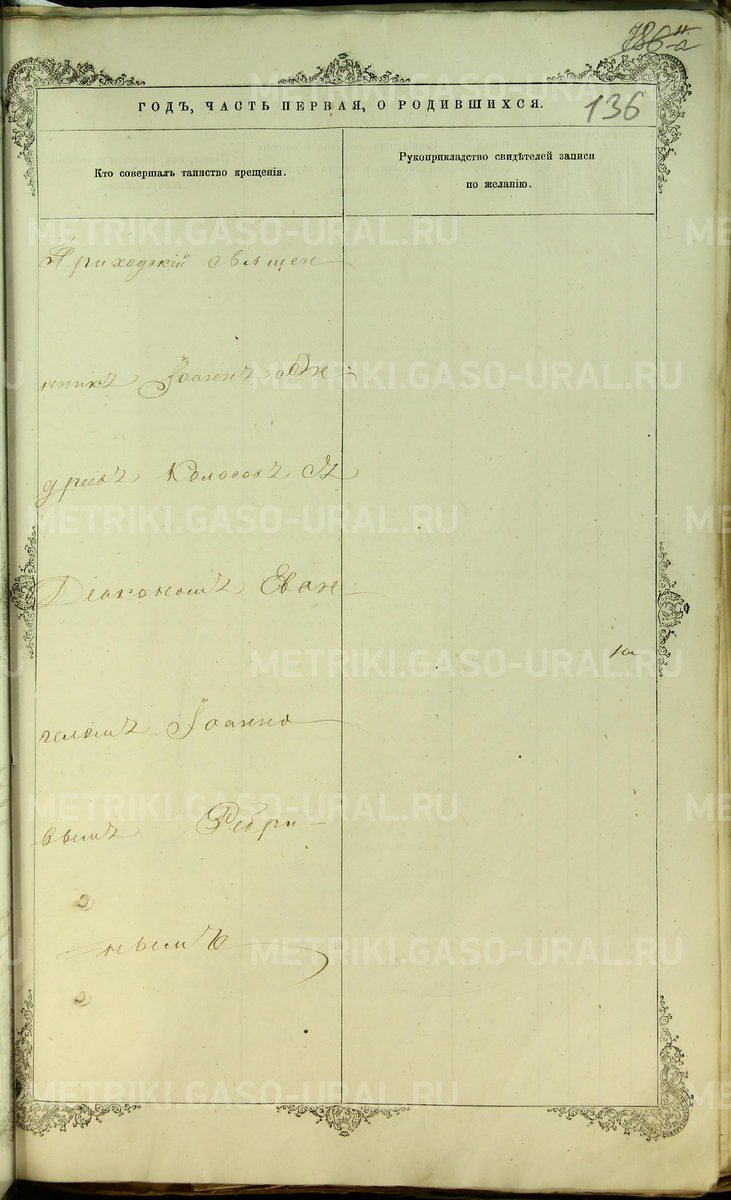 136
ГОДЪ, ЧАСТЬ ПЕРВАЯ, О РОДИВШИХСЯ.
Кто совершалъ таинство крещенія.
Рукоприкладство свидѣтелей записи
по желанію.
Приходскій священ
никъ Іоаннъ Ан
дреевъ Колосовъ Съ
Діакономъ Еван
геломъ Іоанно
вымъ
нымъ
METRIKI.GASO-URAL.RU